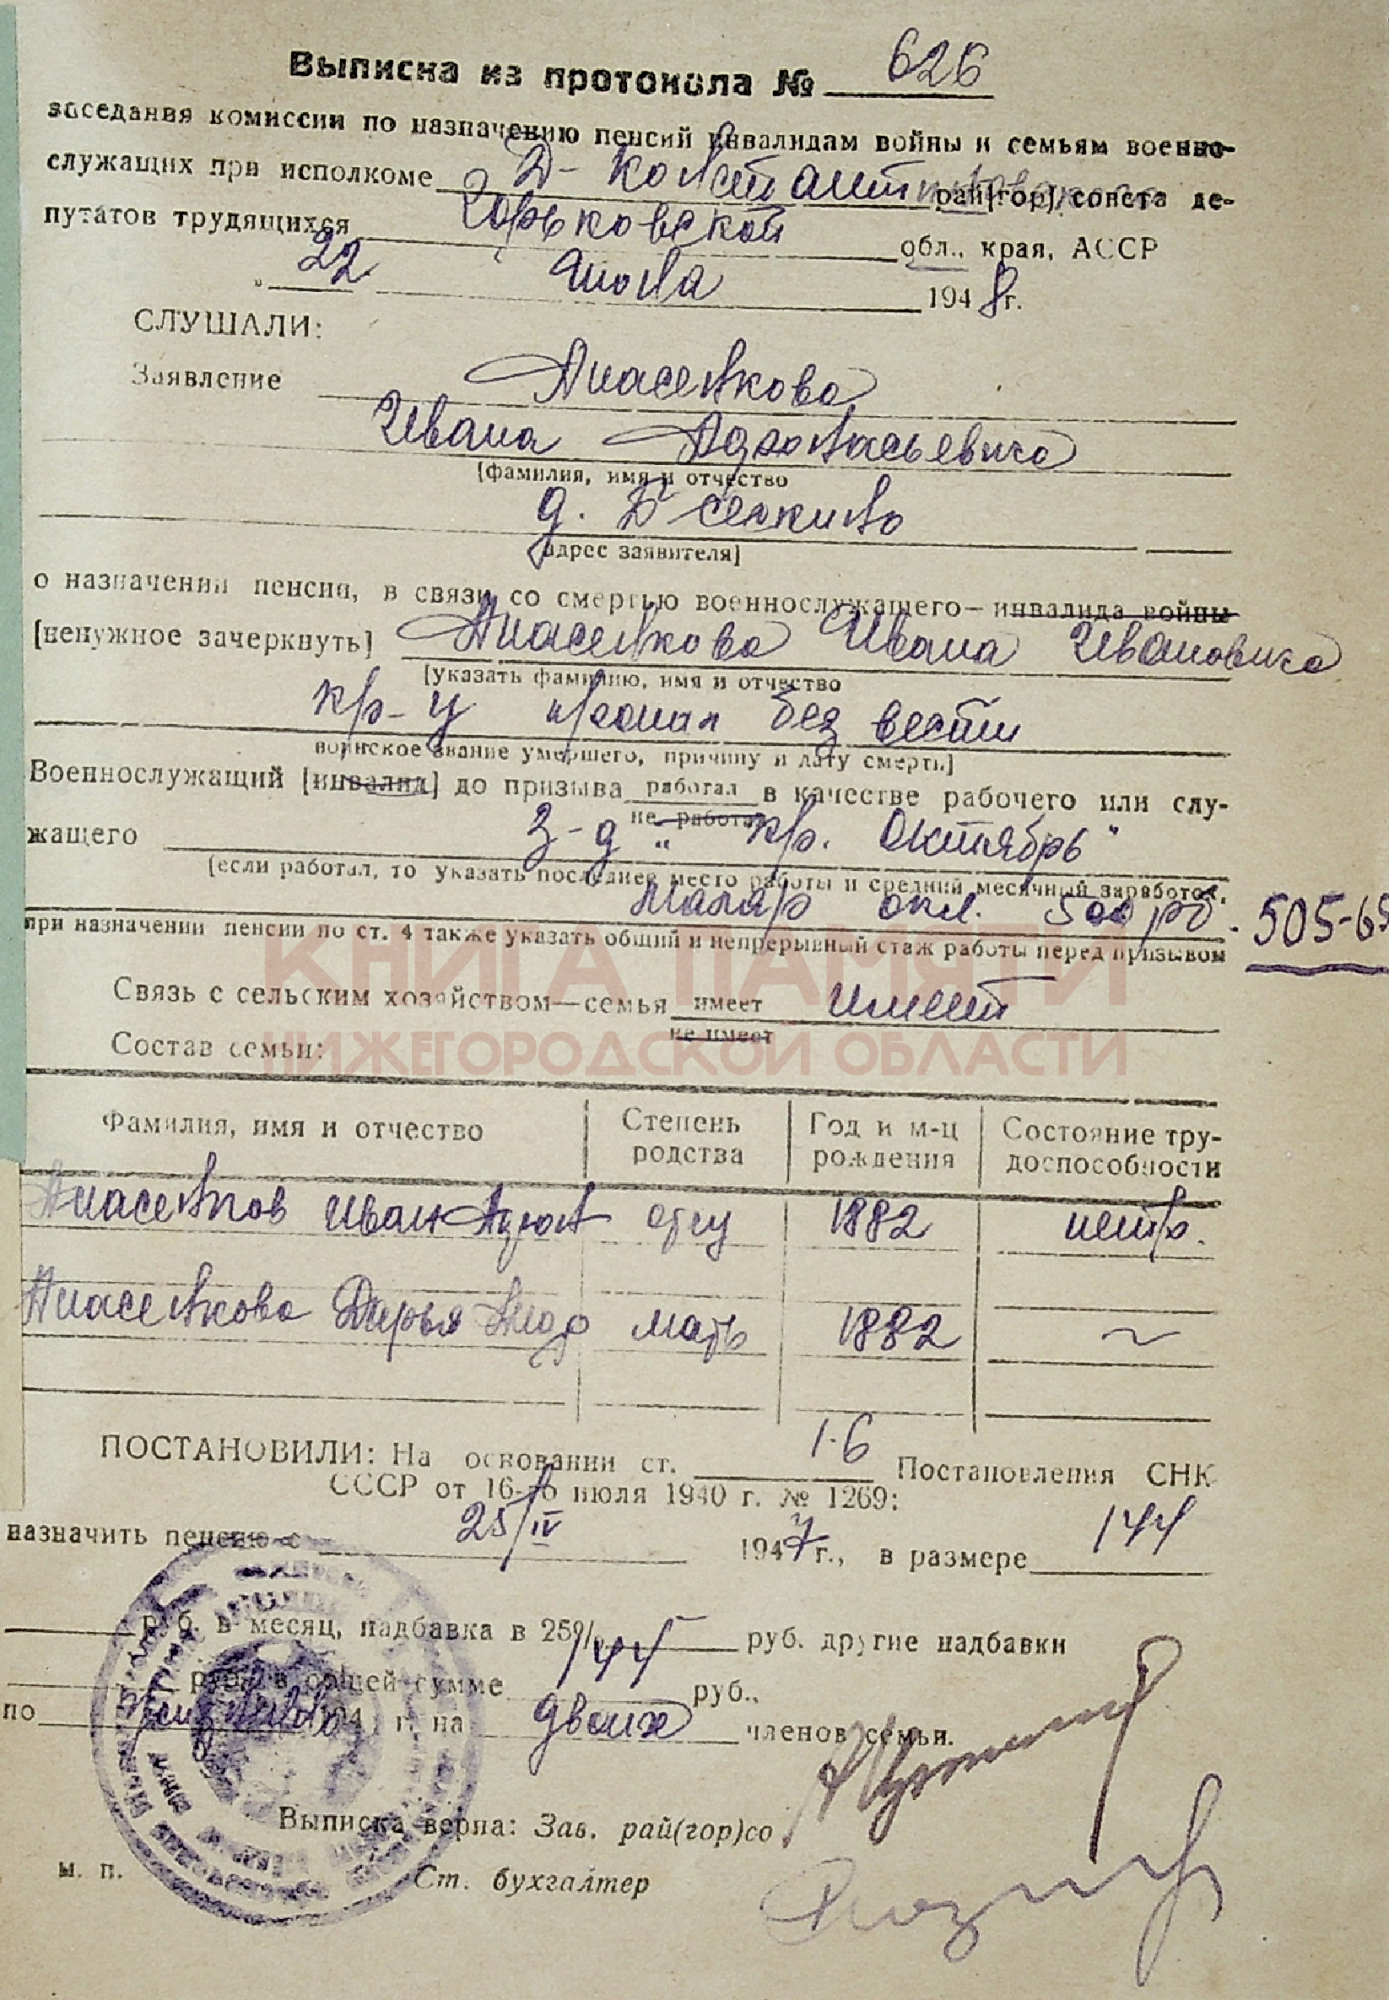 Выписка из протокола № 626
заседания комиссии по назначению пенсий инвалидам войны и семьям военно-
служащих при исполкоме Д-Константиновского рай[гор], совета де-
путатов трудящихся Горьковской обл., края, АССР
" 22 Июля 1948 г.
СЛУШАЛИ:
Заявление Анасенкова
Ивана Афанасьевича
[фамилия, имя и отчество
д. Б
адрес заявителя]
о назначении пенсии, в связи со смертью военнослужащего—инвалида войны
[ненужное зачеркнуть] Анасенкова Ивана Ивановича
[указать фамилию, имя и отчество
кр-ц пропал без вести
воинское звание умершего, причину и дату смерть]
Военнослужащий [инвалид] до призыва работал в качестве рабочего или слу-
не работал
жащего з-д „Кр. Октябрь"
[если работал, то указать последнее место работы и средний месячный заработок,
маляр окл. 500 рб. 505-65
при назначении пенсии по ст. 4 также указать общий и непрерывный стаж работы перед призывом
КНИГА ПАМЯТИ
Связь с сельским хозяйством—семья имеет имеет
не имеет
НИЖЕГОРОДСКОЙ ОБЛАСТИ
Состав семьи:
Фамилия, имя и отчество Степень родства Год и м-ц рождения Состояние тру-доспособности
Иван отец 1882 нетр.
Анасенкова Дарья мать 1882 ~
ПОСТАНОВИЛИ: На основании ст. 1-6 Постановления СНК
СССР от 16-го июля 1940 г. № 1269:
назначить пенсию с 25/IV 1947 г., в размере 144
руб. в месяц, надбавка в 25% руб. другие надбавки
руб. в общей сумме 144 руб.,
по 194 г. на двоих членов семьи.
Выписка верна: Зав. рай(гор)со
м. п. Ст. бухгалтер